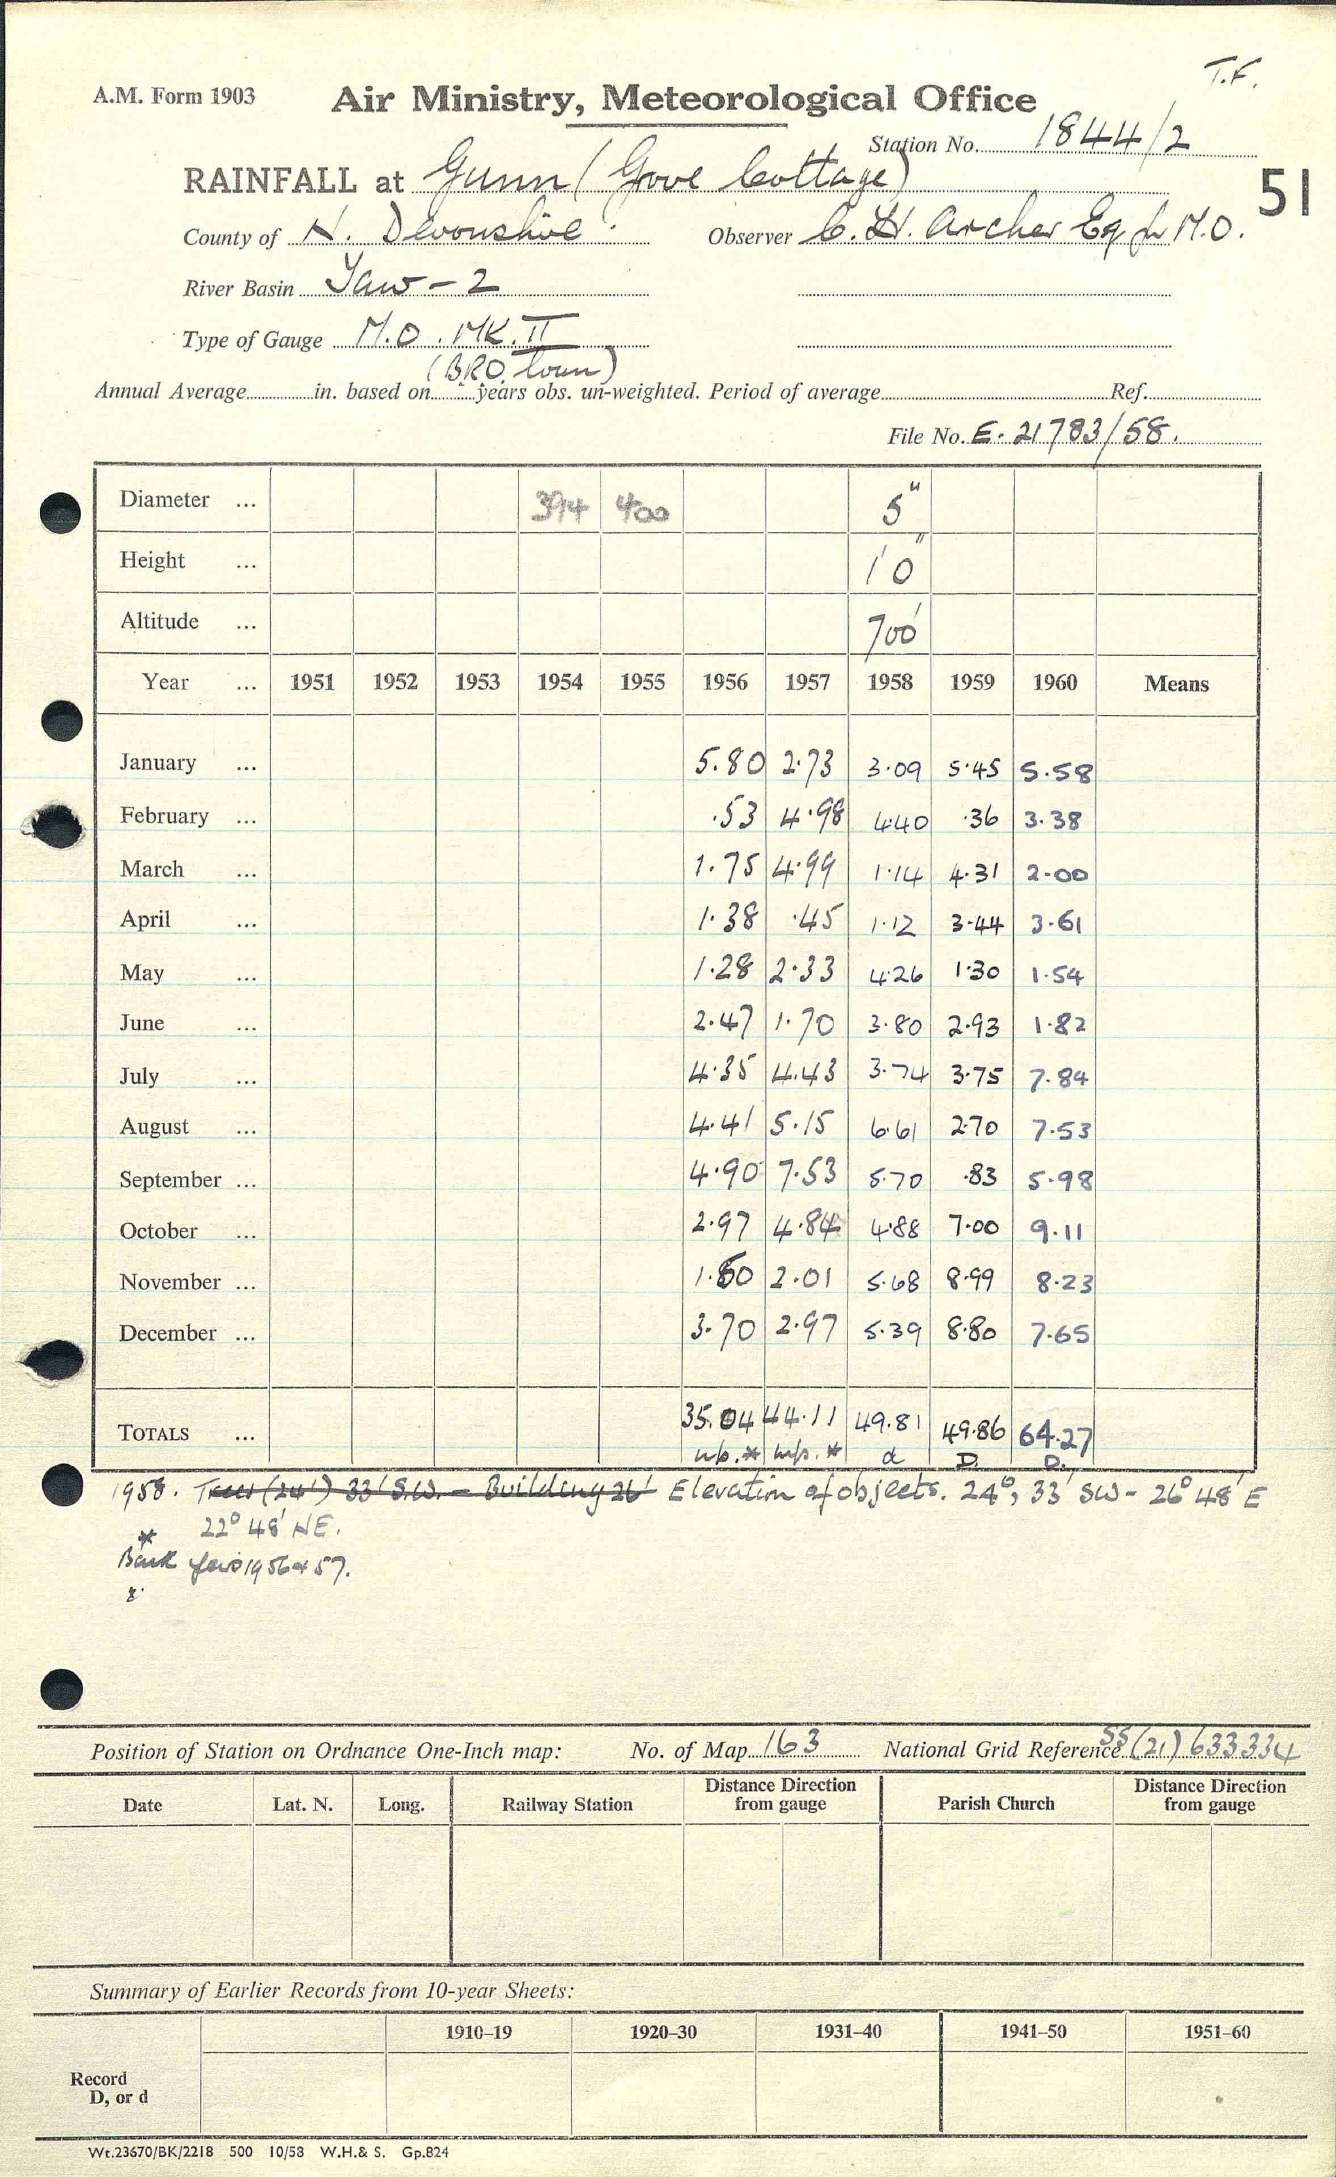 T.F.
A.M. Form 1903 Air Ministry, Meteorological Office
Station No. 1844/2
RAINFALL at Gunn (Gove Cottage) 51
County of N. Devonshire Observer C. H. Archer Esq M.O.
River Basin Taw - 2
Type of Gauge M.O. MK. II
(BRO Loan)
Annual Average in. based on years obs. un-weighted. Period of average Ref.
File No. E. 21783/58.
Diameter ... 394 400 5"
Height ... 1' 0"
Altitude ... 700'
Year ... 1951 1952 1953 1954 1955 1956 1957 1958 1959 1960 Means
January ... 5.80 2.73 3.09 5.45 5.58
February ... .53 4.98 4.40 .36 3.38
March ... 1.75 4.99 1.14 4.31 2.00
April ... 1.38 .45 1.12 3.44 3.61
May ... 1.28 2.33 4.26 1.30 1.54
June ... 2.47 1.70 3.80 2.93 1.82
July ... 4.35 4.43 3.74 3.75 7.84
August ... 4.41 5.15 6.61 2.70 7.53
September ... 4.90 7.53 5.70 .83 5.98
October ... 2.97 4.84 4.88 7.00 9.11
November ... 1.50 2.01 5.68 8.99 8.23
December ... 3.70 2.97 5.39 8.80 7.65
TOTALS ... 35.04 44.11 49.81 49.86 64.27
np. * np. * d D. D.
1958. Trees (24') 33' S.W. - Building 26' Elevation of objects. 24°, 33' SW - 26° 48' E
22° 48' NE.
*
Back years 1956 & 57.
Position of Station on Ordnance One-Inch map: No. of Map 163 National Grid Reference SS (21) 633334
Date Lat. N. Long. Railway Station Distance Direction from gauge Parish Church Distance Direction from gauge
Summary of Earlier Records from 10-year Sheets:
1910–19 1920–30 1931–40 1941–50 1951–60
Record
D, or d
Wt.23670/BK/2218 500 10/58 W.H.& S. Gp.824